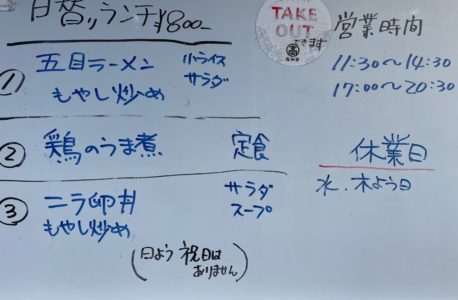 日替りランチ ¥800-
① 五目ラーメン 小ライス
もやし炒め サラダ
② 鶏のうま煮 定食
③ ニラ卵丼 サラダ
もやし炒め スープ
(日よう 祝日は
ありません)
TAKE
OUT
できます
営業時間
11:30～14:30
17:00～20:30
休業日
水、木よう日